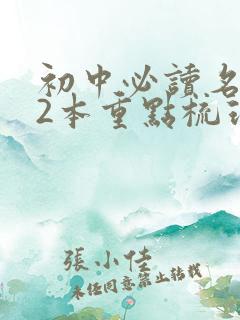 初中必讀名
2本重點梳
張小佳
未經同意禁止轉載